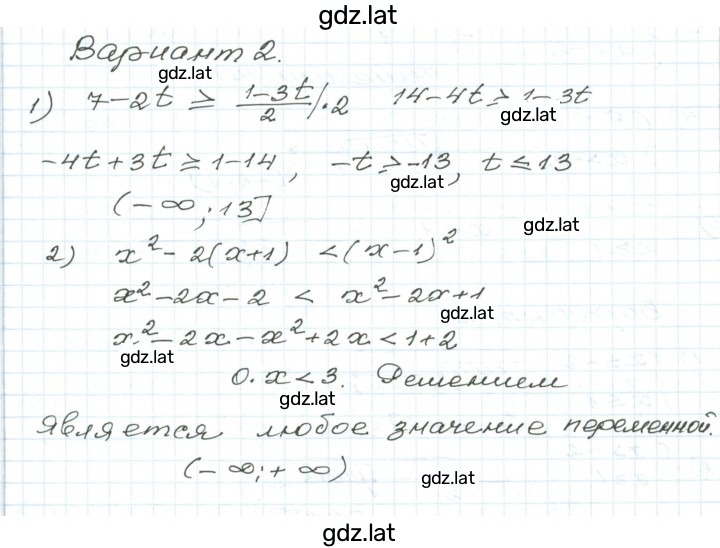 gdz.lat
Вариант 2.
gdz.lat
1) 7-2t ≥ (1-3t)/2 /·2 14-4t ≥ 1-3t
gdz.lat
-4t+3t ≥ 1-14, -t ≥ -13, t ≤ 13
gdz.lat
(-∞; 13]
gdz.lat
2) x²-2(x+1) <(x-1)²
x²-2x-2 < x²-2x+1
gdz.lat
x²-2x-x²+2x<1+2
gdz.lat
0·x<3. Решением
gdz.lat
является любое значение переменной.
(-∞;+∞)
gdz.lat
gdz.lat